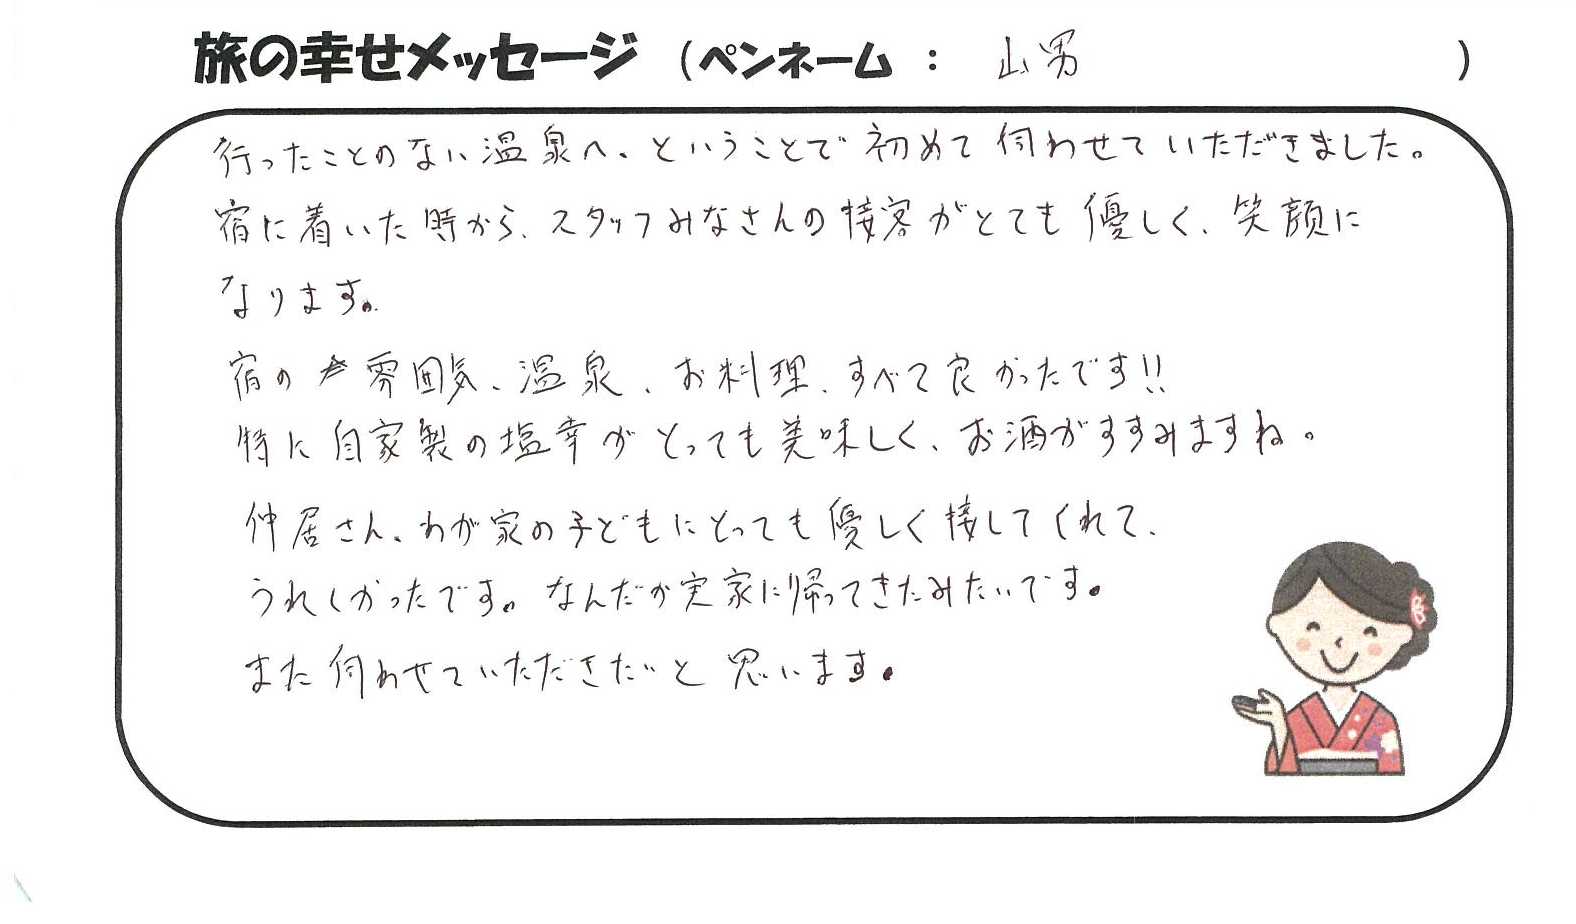 旅の幸せメッセージ (ペンネーム : 山男 )
行ったことのない温泉へ、ということで初めて伺わせていただきました。
宿に着いた時から、スタッフみなさんの接客がとても優しく、笑顔に
なります。
宿の雰囲気、温泉、お料理、すべて良かったです!!
特に自家製の塩辛がとっても美味しく、お酒がすすみますね。
仲居さん、わが家の子どもにとっても優しく接してくれて、
うれしかったです。なんだか実家に帰ってきたみたいです。
また伺わせていただきたいと思います。